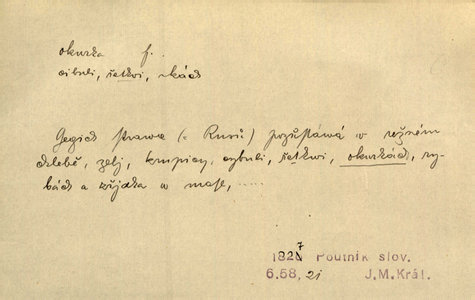 okurka f.
cibuli, řetkwi, -kách
Gegich strawa (= Rusů) pozůstáwá v režném
chlebě, zelj, krupicy, cybuli, řetkwi, okurkách, ry-
bách a zřjdka w mase, .....
1827 Poutník slov.
6.58, 21 J.M.Král.